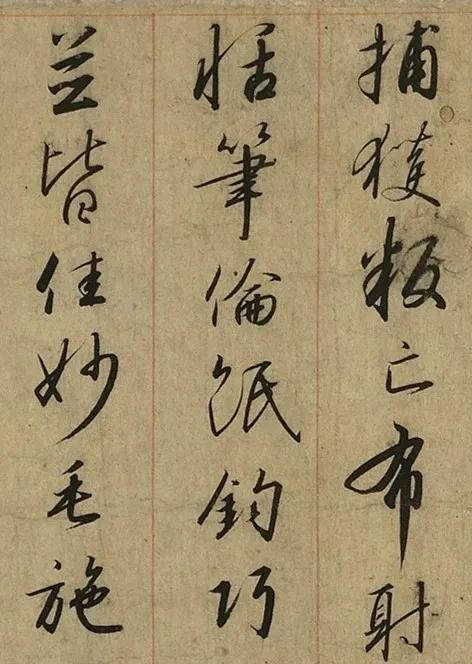 捕獲叛亡布射
恬筆倫紙鈞巧
並皆佳妙毛施